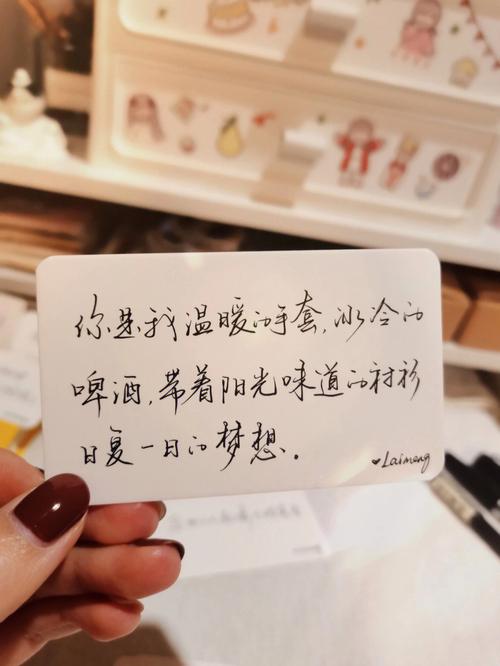 你是我温暖的手套,冰冷的
啤酒,带着阳光味道的衬衫
日复一日的梦想。
♥Laimeng